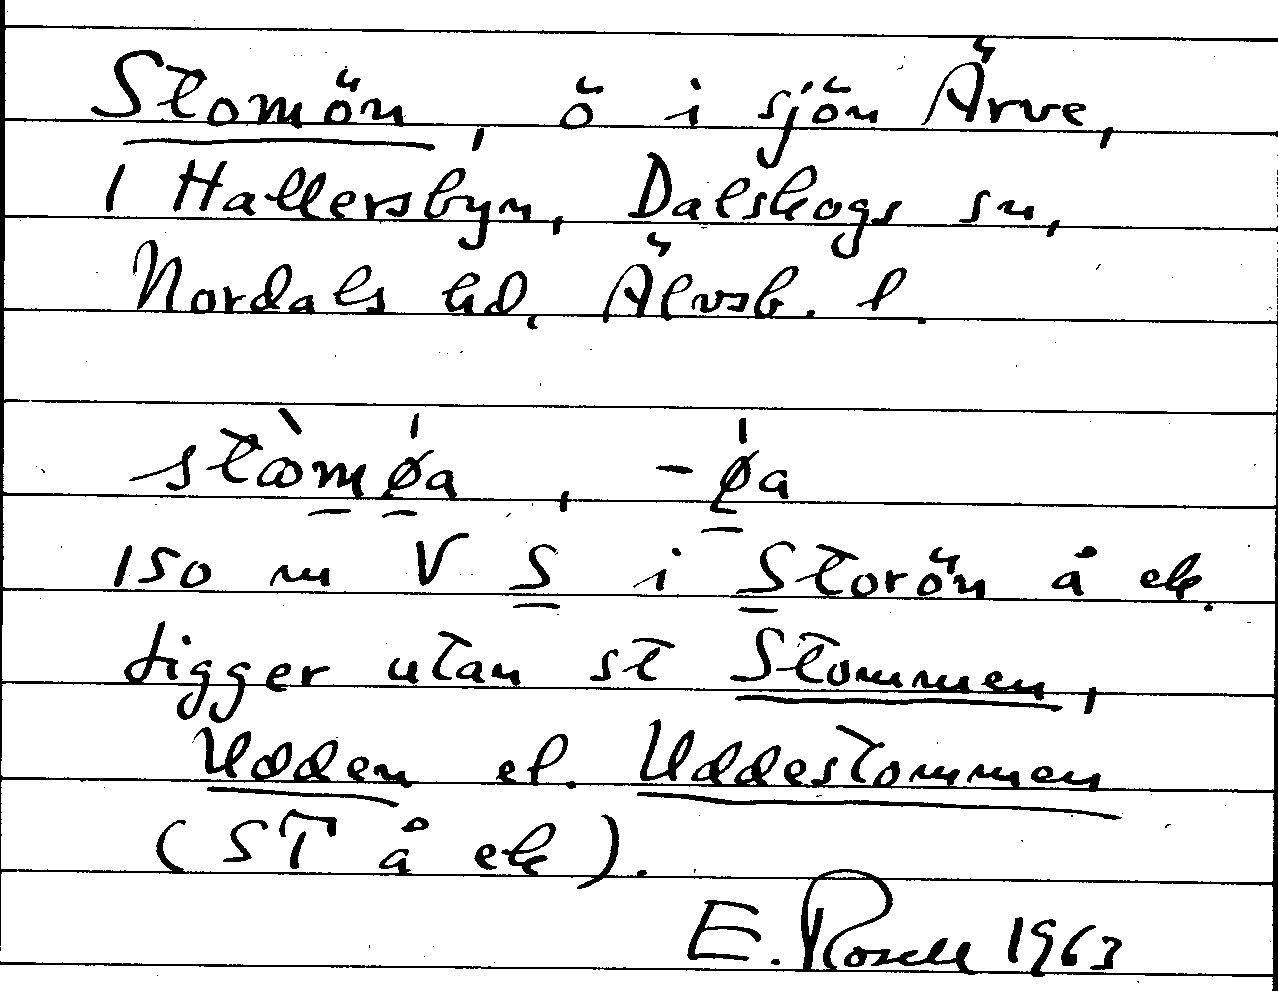 Stomön, ö i sjön Ärve,
i Hallersbyn, Dalskogs sn,
Nordals hd, Älvsb. l.
stòmøa, -øa
150 m V S i Storön å ek.
Ligger utan st Stommen,
Udden el. Uddestommen
(ST å ek).
E. Rosell 1963